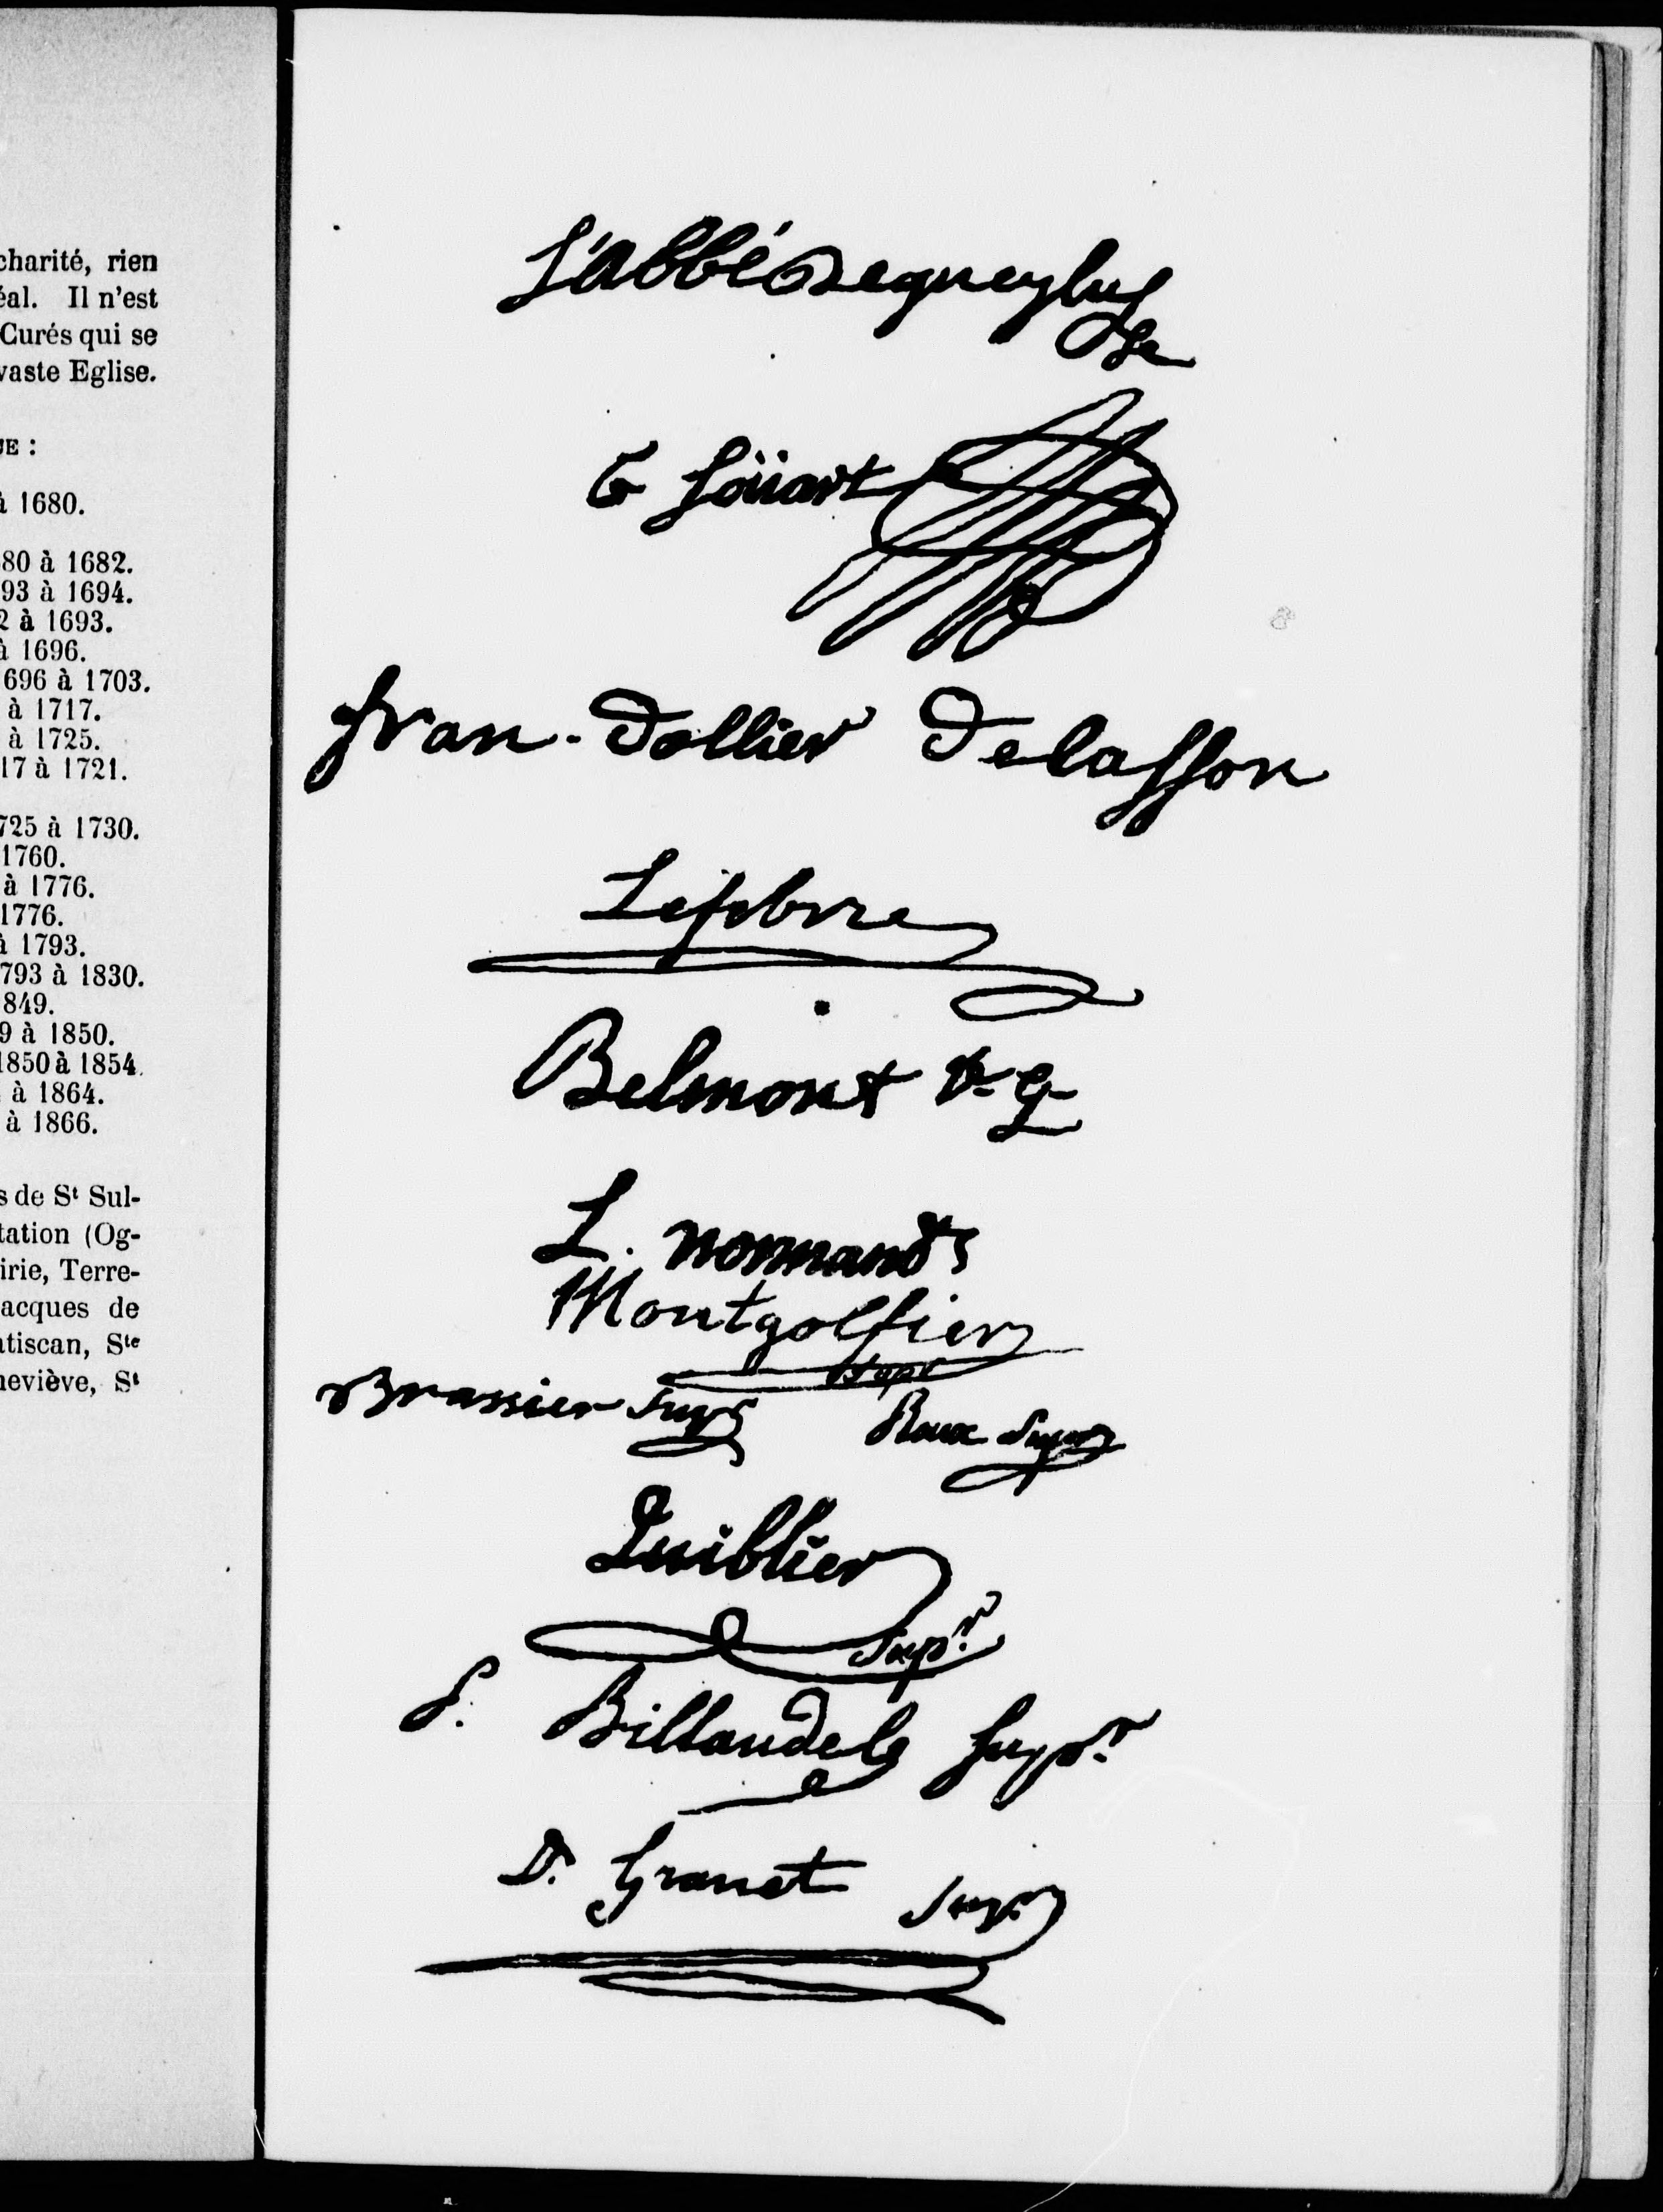 charité, rien
éal. Il n'est
Curés qui se
vaste Eglise.
UE :
à 1680.
80 à 1682.
93 à 1694.
2 à 1693.
à 1696.
696 à 1703.
à 1717.
à 1725.
17 à 1721.
725 à 1730.
1760.
à 1776.
1776.
à 1793.
793 à 1830.
849.
9 à 1850.
1850 à 1854.
à 1864.
à 1866.
s de St Sul-
tation (Og-
irie, Terre-
acques de
atiscan, Ste
neviève, St
L'abbé Dequeylus
G Soüart
fran. Dollier Delasson
Lefebvre
Belmont v. g.
L. normand
Montgolfier
supr
Brassier Supr Roux Supr
Quiblier
Supr
P. Billaudele Supr
D. Granet Supr